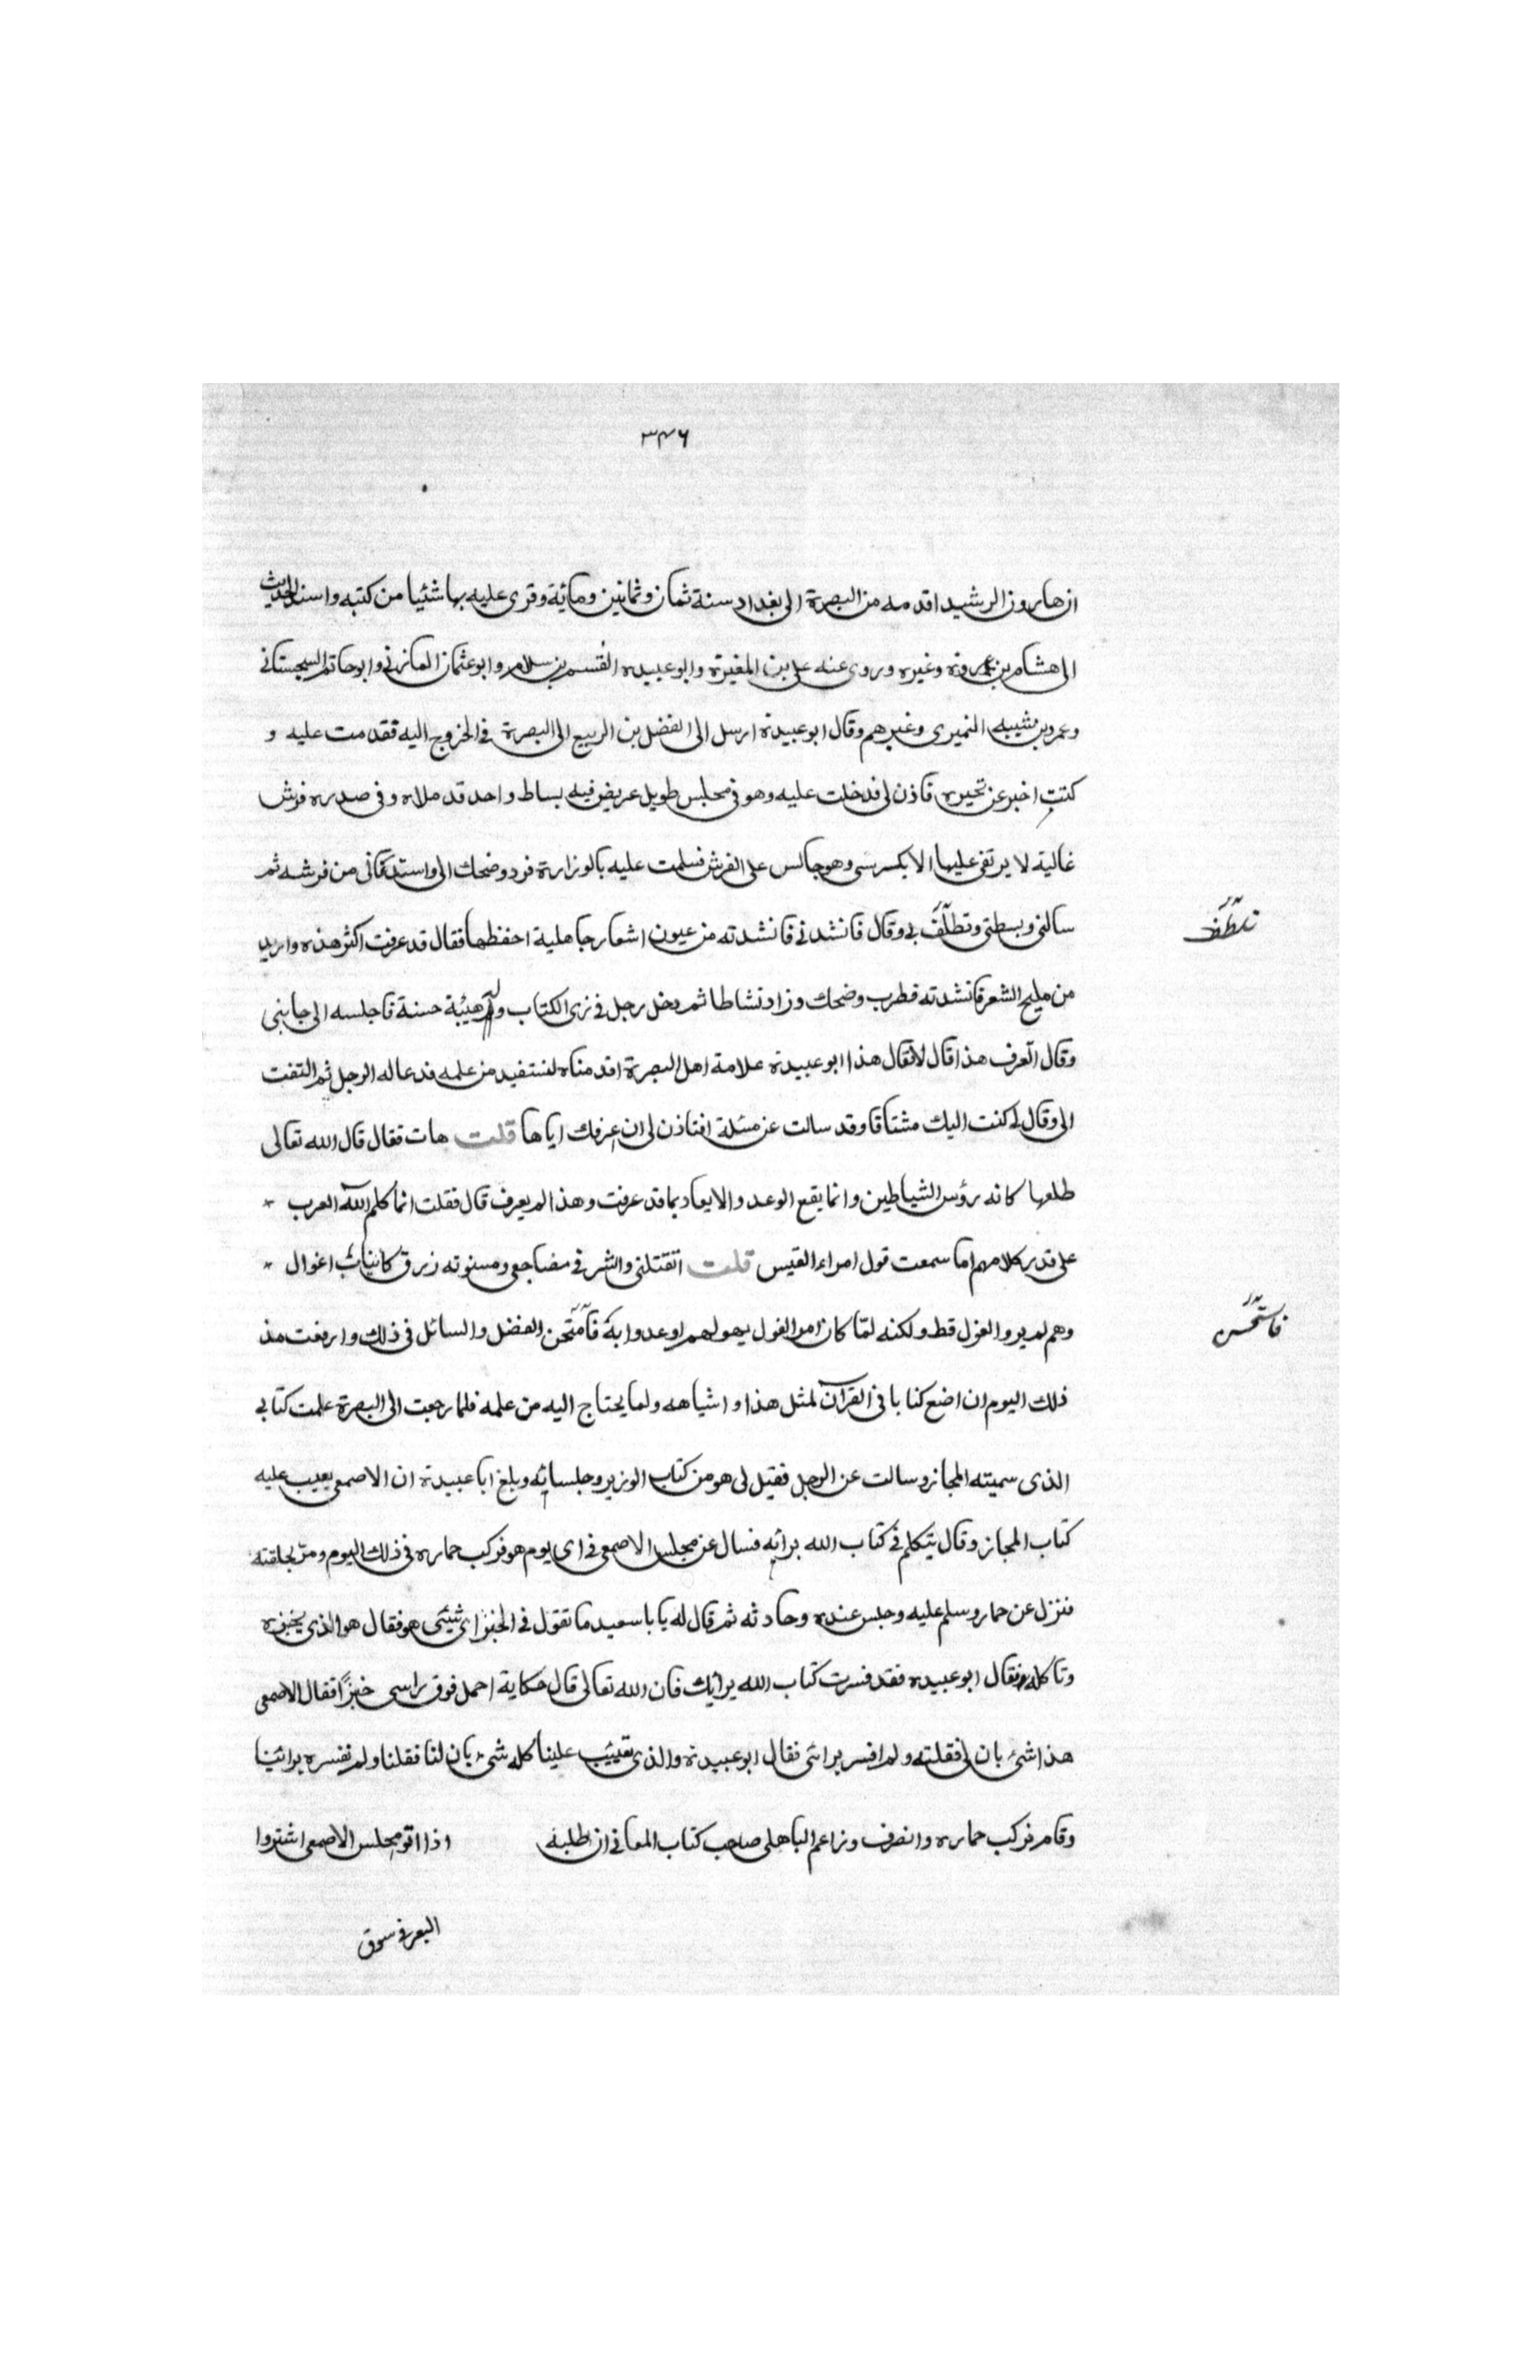 ٣٤٦
ان هارون الرشيد اقدمه من البصرة الى بغداد سنة ثمان وثمانين ومائية وقرى عليه بها شئيا من كتبه واسند الحديث
الى هشام بن عروة وغيره وروى عنه على بن المغيرة وابو عبيده القسم بن سلام وابو عثمان المازنى وابو حاتم السجستانى
وعمرو بن شيبه النميرى وغيرهم وقال ابو عبيدة ارسل الى الفضل بن الربيع الى البصرة فى الخروج اليه فقدمت عليه و
كنت اخبر عن تحيره فاذن لى فدخلت عليه وهو فى مجلس طويل عريض فيه بساط واحد قد ملاه وفى صدره فرش
غالية لا يرتقى عليها الا بكرسى وهو جالس على الفرش فسلمت عليه بالوزارة فرد وضحك الى واستدنانى من فرشه ثم
سالنى وبسطنى وتطلّف بى وقال فانشدنى فانشدته من عيون اشعار جاهلية احفظها فقال قد عرفت اكثر هذه واريد
تلطّف
من مليح الشعر فانشدته فطرب وضحك وزاد نشاطا ثم دخل رجل فى زى الكتاب وله هيئة حسنة فاجلسه الى جانبى
وقال اتعرف هذا قال لا فقال هذا ابو عبيدة علامة اهل البصرة اقدمناه لنستفيد من علمه فدعا له الرجل ثم التفت
الى وقال لى كنت اليك مشتاقا وقد سالت عن مسئلة افتاذن لى ان اعرفك اياها قلت هات فقال قال الله تعالى
طلعها كانه رؤس الشياطين وانما يقع الوعد والايعاد بما قد عرفت وهذا لم يعرف قال فقلت انما كلم الله العرب
على قدير كلامهم اما سمعت قول امراء القيس قلت اتقتلنى والشر فى مضاجعى ومسنوته زرق كانياب اغوال
وهم لم يروا الغول قط ولكنه لمّا كان امر الغول يهولهم اوعدوا به فامتحن الفضل والسائل فى ذلك وارمغت مذ
فاستحسن
ذلك اليوم ان اضع كتابا فى القرآن لمثل هذا واشياهه ولما يحتاج اليه من علمه فلما رجعت الى البصرة علمت كتابى
الذى سميته المجاز وسالت عن الرجل فقيل لى هو من كتاب الوزير وجلسائه وبلغ ابا عبيدة ان الاصمعى يعيب عليه
كتاب المجاز وقال يتكلم فى كتاب الله برائه فسال عن مجلس الاصمعى فى اى يوم هو فركب حماره فى ذلك اليوم ومرّ بحلقته
فنزل عن حمار وسلم عليه وجلس عنده وحادثه ثم قال له يا با سعيد ما تقول فى الخبز اى شيئى هو فقال هو الذى يخبزه
وتاكله فقال ابو عبيده فقد فسرت كتاب الله برائك فان الله تعالى قال حكاية احمل فوق راسى خبزًا فقال الاصمعى
هذا شئ بان لى فقلته ولم افسر برائى فقال ابو عبيدة والذى تعييب علينا كله شئ بان لنا فقلنا ولم نفسره برائينا
وقام فركب حماره وانصرف وزاعم الباهلى صاحب كتاب المعانى ان طلبة اذا اتو مجلس الاصمعى اشتروا
البعر فى سوق